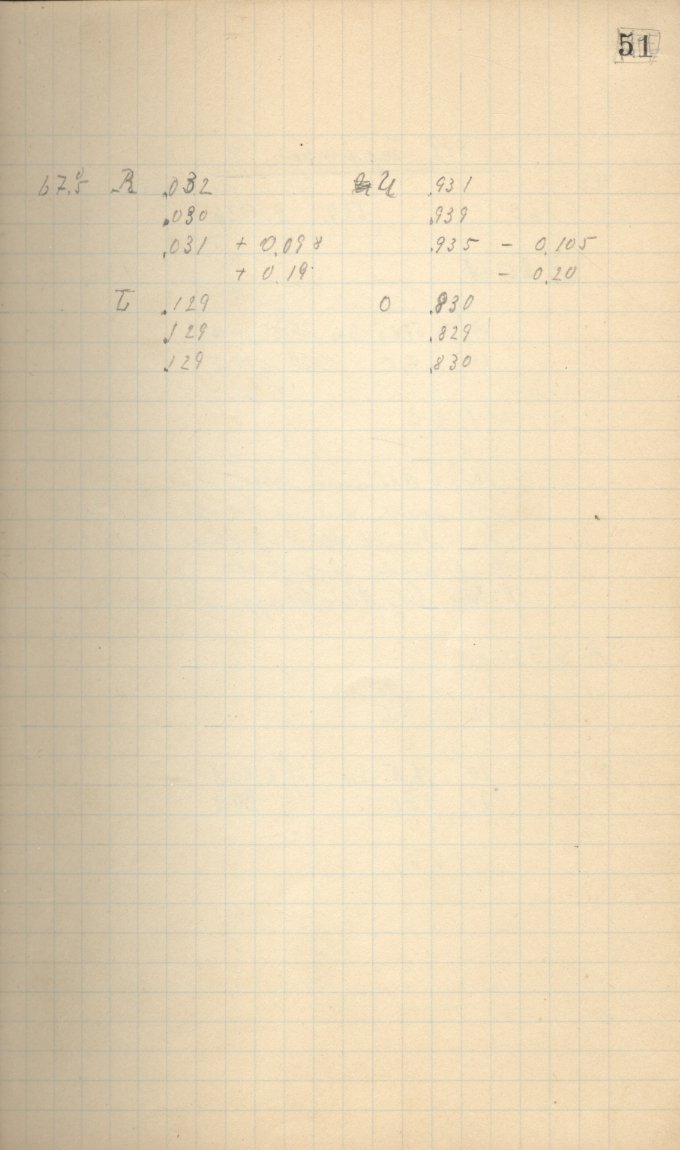 51
67.5 R .032 U .931
.030 .939
.031 + 0.098 .935 - 0.105
+ 0.19 - 0.20
L .129 O .830
.129 .829
.129 .830